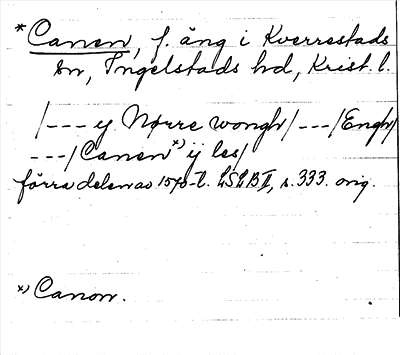 *Canen, f. äng i Kverrestads
sn, Ingelstads hd, Krist. l.
/--- ij Nørre wongh/ ---/Engh/
---/Canen*) ij les/
förra delen av 1570-t. LSLB II, s. 333. orig.
*) Canon.